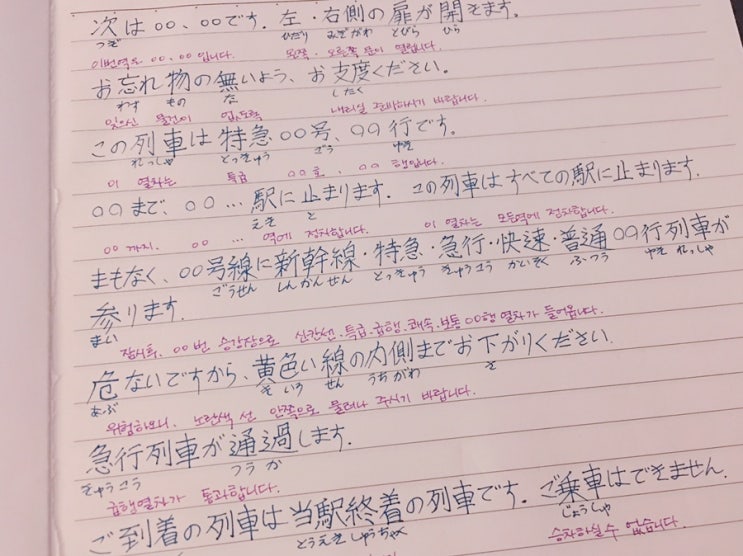 次は○○、○○です. 左・右側の扉が開きます.
つぎ ひだり みぎがわ とびら ひら
이번역은 ○○、○○입니다. 왼쪽・오른쪽 문이 열립니다.
お忘れ物の無いよう、お支度ください。
わす もの な したく
잊으신 물건이 없도록 내리실 준비하시기 바랍니다.
この列車は特急○○号、○○行です。
れっしゃ とっきゅう ごう ゆき
이 열차는 특급 ○○호、○○행입니다.
○○まで、○○…駅に止まります. この列車はすべての駅に止まります.
えき と
○○까지. ○○ … 역에 정차합니다. 이 열차는 모든역에 정차합니다.
まもなく、○○号線に新幹線・特急・急行・快速・普通○○行列車が
ごうせん しんかんせん とっきゅう きゅうこう かいそく ふつう ゆき れっしゃ
参ります.
まい
잠시후, ○○번 승강장으로 신칸센、특급、급행、쾌속、보통○○행 열차가 들어옵니다.
危ないですから、黄色い線の内側までお下がりください.
あぶ き いろ せん うちがわ さ
위험하오니、노란색 선 안쪽으로 물러나 주시기 바랍니다.
急行列車が通過します.
きゅうこう つうか
급행열차가 통과합니다.
ご到着の列車は当駅終着の列車です. ご乗車はできません.
とうえきしゅうちゃく じょうしゃ
승차하실 수 없습니다.